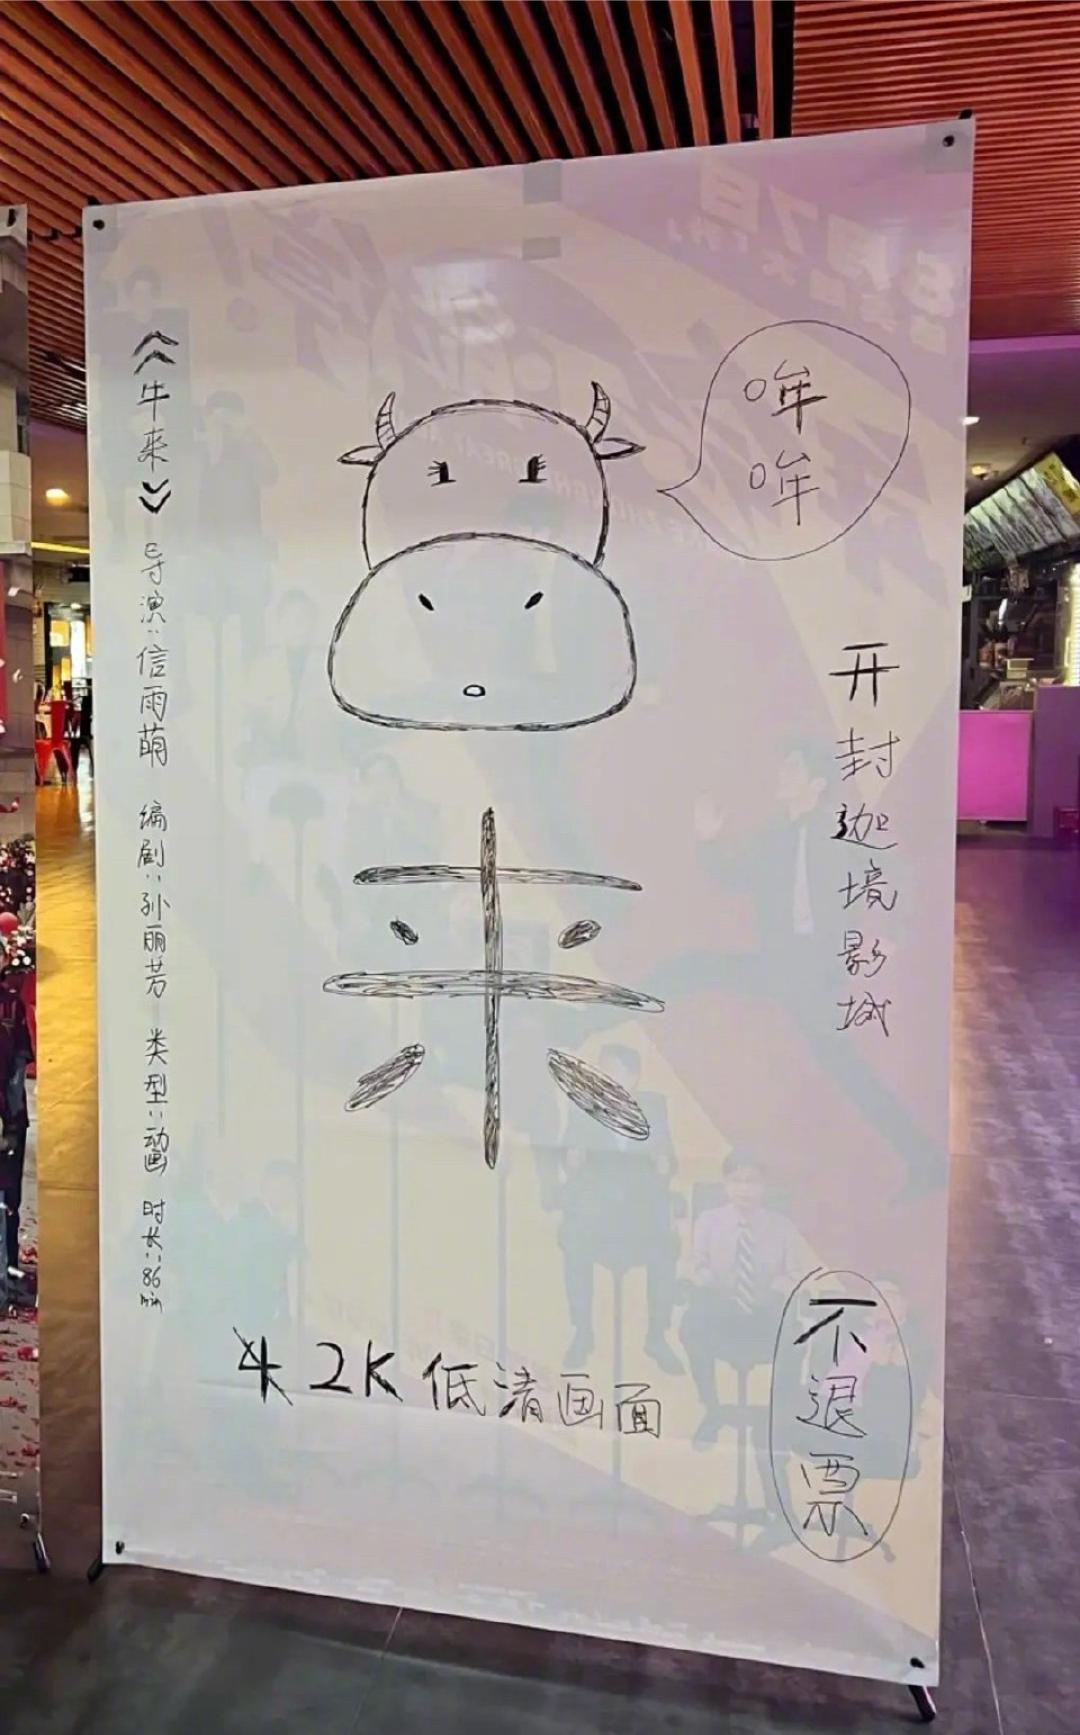 《牛来》 导演：信雨萌 编剧：孙丽芳 类型：动画 时长：86min
哞
哞
来
开封迦境影城
2K低清画面
不退票